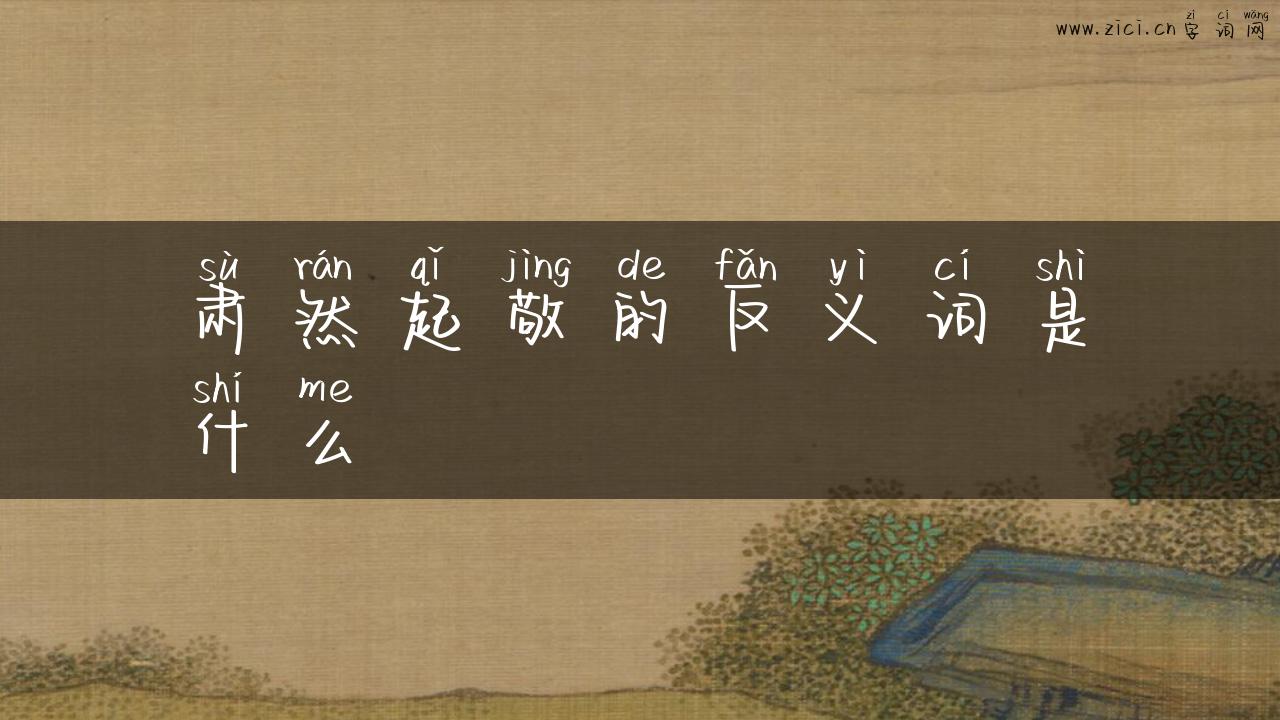 www.zici.cn 字词网
zì cí wǎng
sù rán qǐ jìng de fǎn yì cí shì
肃然起敬的反义词是
shí me
什么